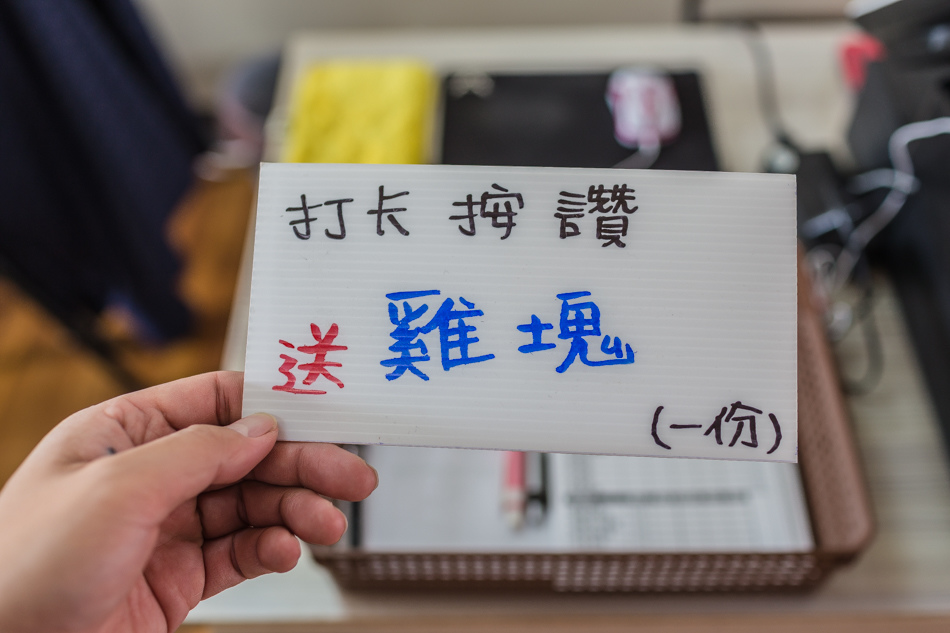 打卡 按 讚
送 雞塊
(一份)